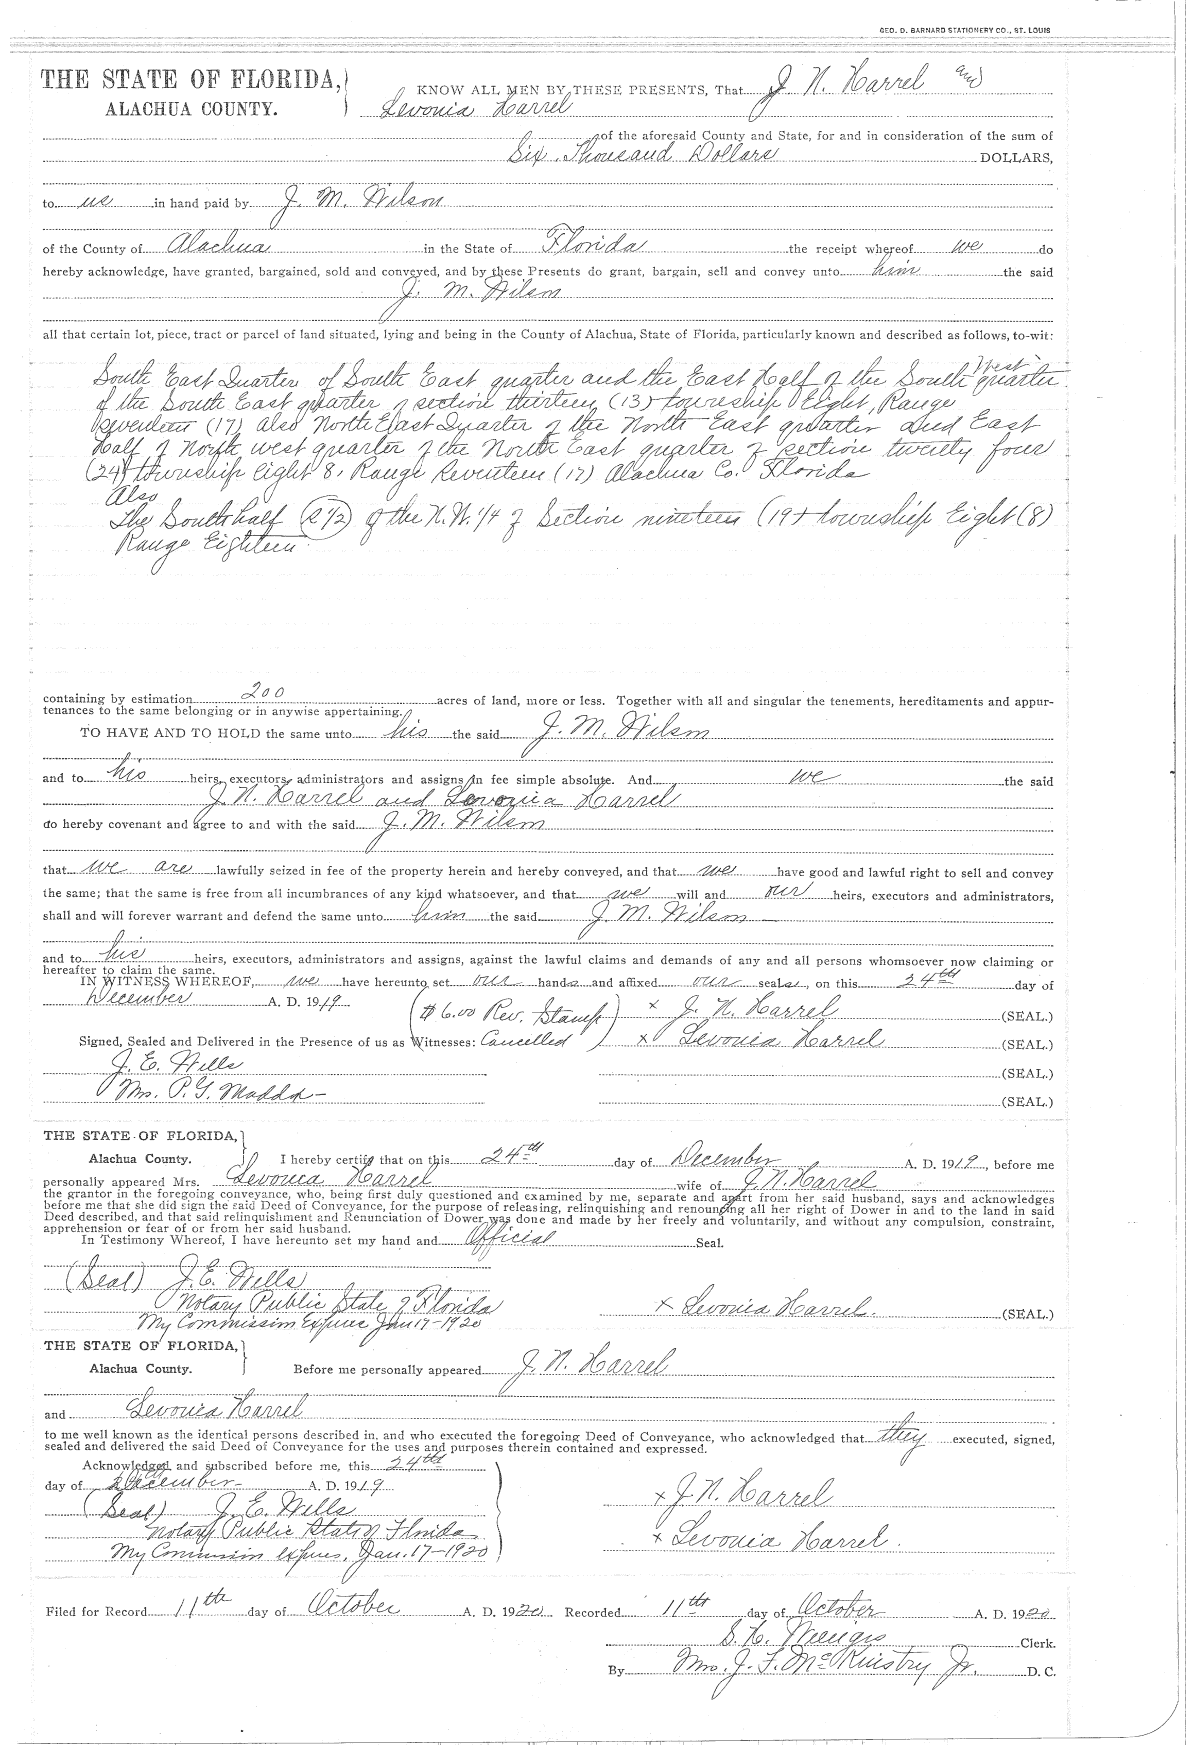 GEO. D. BARNARD STATIONERY CO., ST. LOUIS
THE STATE OF FLORIDA,
ALACHUA COUNTY.
KNOW ALL MEN BY THESE PRESENTS, That J. N. Harrel and
Levonia Harrel
of the aforesaid County and State, for and in consideration of the sum of
Six Thousand Dollars DOLLARS,
to us in hand paid by J. M. Wilson
of the County of Alachua in the State of Florida the receipt whereof we do
hereby acknowledge, have granted, bargained, sold and conveyed, and by these Presents do grant, bargain, sell and convey unto him the said
J. M. Wilson
all that certain lot, piece, tract or parcel of land situated, lying and being in the County of Alachua, State of Florida, particularly known and described as follows, to-wit:
South East Quarter of South East quarter and the East Half of the South West quarter
of the South East quarter of section thirteen (13) township Eight, Range
seventeen (17) also North East Quarter of the North East quarter and East
Half of North west quarter of the North East quarter of section twenty four
(24) township Eight 8, Range Seventeen (17) Alachua Co. Florida
Also
The South half (S 1/2) of the N.W. 1/4 of Section nineteen (19) township Eight (8)
Range Eighteen
containing by estimation 200 acres of land, more or less. Together with all and singular the tenements, hereditaments and appur-
tenances to the same belonging or in anywise appertaining.
TO HAVE AND TO HOLD the same unto his the said J. M. Wilson
and to his heirs, executors, administrators and assigns in fee simple absolute. And we the said
J. N. Harrel and Levonia Harrel
do hereby covenant and agree to and with the said J. M. Wilson
that we are lawfully seized in fee of the property herein and hereby conveyed, and that we have good and lawful right to sell and convey
the same; that the same is free from all incumbrances of any kind whatsoever, and that we will and our heirs, executors and administrators,
shall and will forever warrant and defend the same unto him the said J. M. Wilson
and to his heirs, executors, administrators and assigns, against the lawful claims and demands of any and all persons whomsoever now claiming or
hereafter to claim the same.
IN WITNESS WHEREOF, we have hereunto set our hands and affixed our seals, on this 24th day of
December A. D. 1919
($6.00 Rev. Stamp Cancelled)
x J. N. Harrel (SEAL.)
Signed, Sealed and Delivered in the Presence of us as Witnesses:
x Levonia Harrel (SEAL.)
J. E. Wills (SEAL.)
Mrs. P. G. (SEAL.)
THE STATE OF FLORIDA,
Alachua County.
I hereby certify that on this 24th day of December A. D. 1919, before me
personally appeared Mrs. Levonia Harrel wife of J. N. Harrel
the grantor in the foregoing conveyance, who, being first duly questioned and examined by me, separate and apart from her said husband, says and acknowledges
before me that she did sign the said Deed of Conveyance, for the purpose of releasing, relinquishing and renouncing all her right of Dower in and to the land in said
Deed described, and that said relinquishment and Renunciation of Dower was done and made by her freely and voluntarily, and without any compulsion, constraint,
apprehension or fear of or from her said husband.
In Testimony Whereof, I have hereunto set my hand and Official Seal.
(Seal) J. E. Wills
Notary Public State of Florida
x Levonia Harrel. (SEAL.)
My Commission Expires Jan 17-1920
THE STATE OF FLORIDA,
Alachua County.
Before me personally appeared J. N. Harrel
and Levonia Harrel
to me well known as the identical persons described in, and who executed the foregoing Deed of Conveyance, who acknowledged that they executed, signed,
sealed and delivered the said Deed of Conveyance for the uses and purposes therein contained and expressed.
Acknowledged and subscribed before me, this 24th
day of December A. D. 1919
(Seal) J. E. Wills
Notary Public State of Florida
My Commission expires, Jan. 17-1920
x J. N. Harrel
x Levonia Harrel.
Filed for Record 11th day of October A. D. 1920 Recorded 11th day of October A. D. 1920
S. H. Clerk.
By Mrs. J. F. McKinstry Jr. D. C.